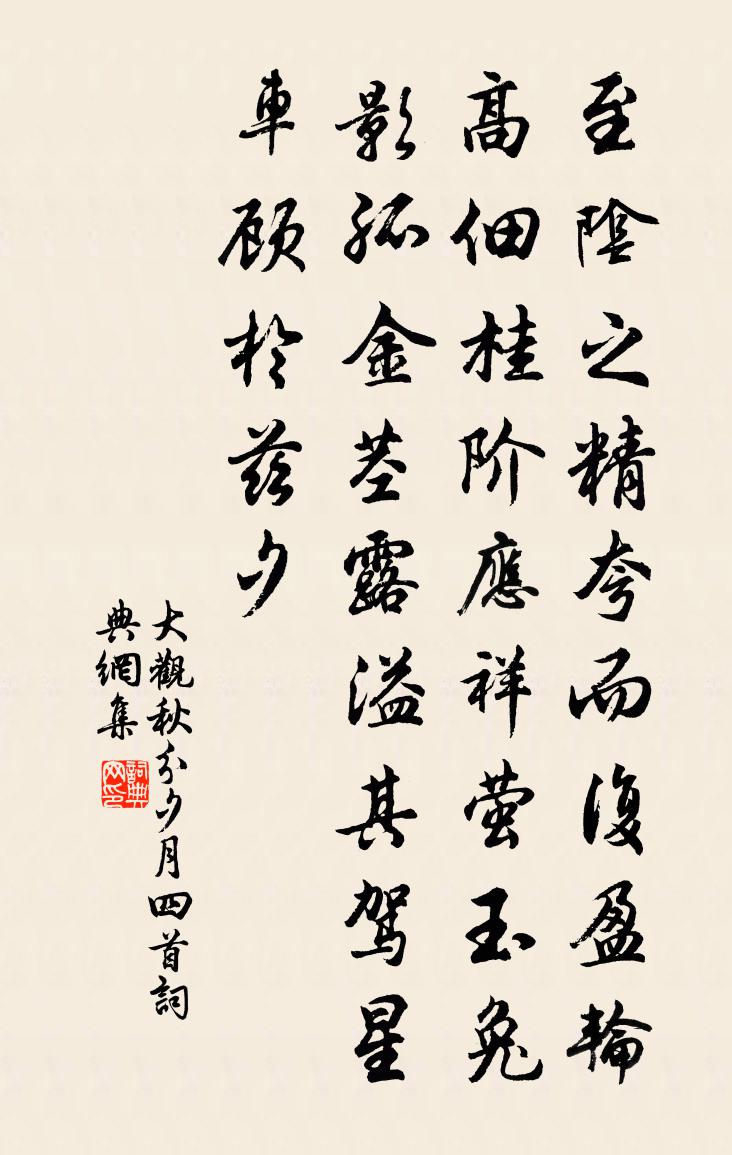 至陰之精夸而復盈輪
高佃桂阶應祥萤玉兔
影孤金茎露溢其驾星
車顾於兹夕
大觀秋分夕月四首詞
典網集
詞典网印